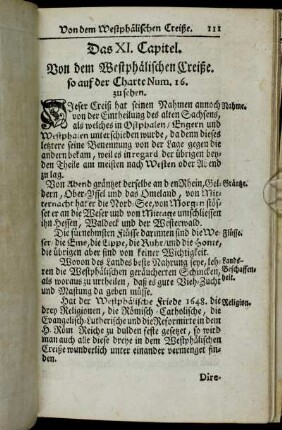 Von dem Westphälischen Creiße. 111
Das XI. Capitel.
Von dem Westphälischen Creiße.
so auf der Charte Num. 16.
zu sehen.
Dieser Creiß hat seinen Nahmen annoch Nahme.
von der Eintheilung des alten Sachsens,
als welches in Ostphalen, Engern und
Westphalen unterschieden wurde, da denn dieses
letztere seine Benennung von der Lage gegen die
andern bekam, weil es in regard der übrigen bey-
den Theile am meisten nach Westen oder Abend
zu lag.
Von Abend gräntzet derselbe an den Rhein, Gel- Gräntze.
dern, Ober-Yssel und das Omeland, von Mit-
ternacht hat er die Nord-See, von Morgen stös-
set er an die Weser und von Mittage umschliessen
ihn Hessen, Waldeck und der Westerwald.
Die fürnehmsten Flüsse darinnen sind die We- Flüsse.
ser, die Ems, die Lippe, die Ruhr, und die Honte,
die übrigen aber sind von keiner Wichtigkeit.
Wovon das Landes beste Nahrung seye, leh- Landes-
ren die Westphälischen geräucherten Schincken, Beschaffen-
als woraus zu urtheilen, daß es gute Vieh-Zucht heit.
und Mastung da geben müsse.
Hat der Westphälische Friede 1648. die Religion.
drey Religionen, die Römisch-Catholische, die
Evangelisch-Lutherische und die Reformirte in dem
H. Röm Reiche zu dulden feste gesetzt, so wird
man auch alle diese dreye in dem Westphälischen
Creiße wunderlich unter einander vermenget fin-
den.
Dire-